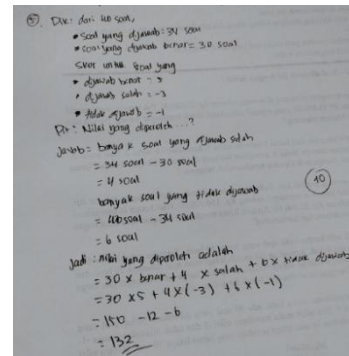 ⑤ Dik: dari 40 soal,
• soal yang dijawab = 34 soal
• soal yang dijawab benar = 30 soal
skor untuk soal yang
• dijawab benar = 5
• dijawab salah = -3
• tidak dijawab = -1
Dit: Nilai yang diperoleh ...?
Jawab = banyak soal yang dijawab salah
= 34 soal - 30 soal
= 4 soal
banyak soal yang tidak dijawab
= 40 soal - 34 soal
= 6 soal
10
Jadi : nilai yang diperoleh adalah
= 30 x benar + 4 x salah + 6 x tidak dijawab
= 30 x 5 + 4 x (-3) + 6 x (-1)
= 150 - 12 - 6
= 132